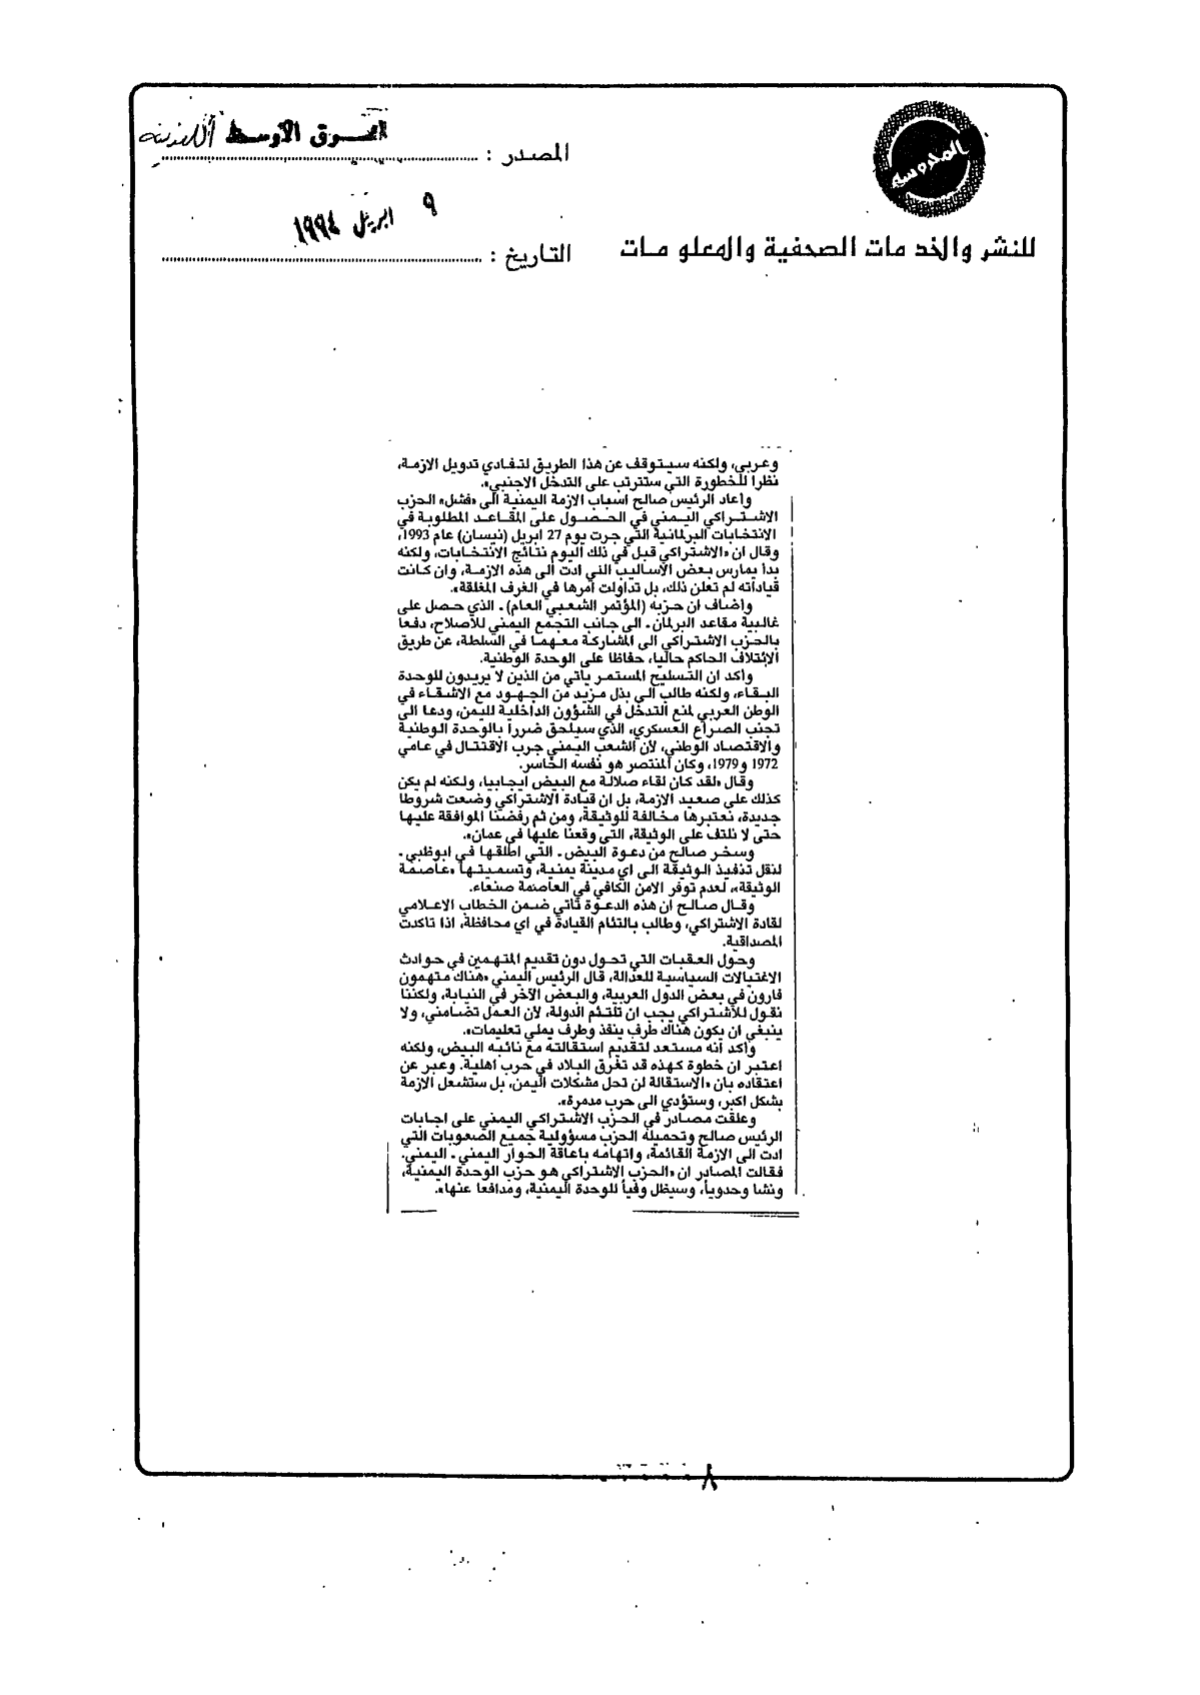 المصدر : الشرق الأوسط اللندنية
المحروسة
التاريخ : ٩ ابريل ١٩٩٤
للنشر والخدمات الصحفية والمعلومات
وعربي، ولكنه سيتوقف عن هذا الطريق لتفادي تدويل الازمة،
نظراً للخطورة التي ستترتب على التدخل الاجنبي».
واعاد الرئيس صالح اسباب الازمة اليمنية الى «فشل» الحزب
الاشتراكي اليمني في الحصول على المقاعد المطلوبة في
الانتخابات البرلمانية التي جرت يوم 27 ابريل (نيسان) عام 1993،
وقال ان «الاشتراكي قبل في ذلك اليوم نتائج الانتخابات، ولكنه
بدأ يمارس بعض الاساليب التي ادت الى هذه الازمة، وان كانت
قياداته لم تعلن ذلك، بل تداولت أمرها في الغرف المغلقة».
واضاف ان حزبه (المؤتمر الشعبي العام) ـ الذي حصل على
غالبية مقاعد البرلمان ـ الى جانب التجمع اليمني للاصلاح، دفعا
بالحزب الاشتراكي الى المشاركة معهما في السلطة، عن طريق
الإئتلاف الحاكم حالياً، حفاظاً على الوحدة الوطنية.
واكد ان التسليح المستمر يأتي من الذين لا يريدون للوحدة
البقاء، ولكنه طالب الى بذل مزيد من الجهود مع الاشقاء في
الوطن العربي لمنع التدخل في الشؤون الداخلية لليمن، ودعا الى
تجنب الصراع العسكري، الذي سيلحق ضرراً بالوحدة الوطنية
والاقتصاد الوطني، لأن الشعب اليمني جرب الاقتتال في عامي
1972 و1979، وكان المنتصر هو نفسه الخاسر.
وقال «لقد كان لقاء صلالة مع البيض ايجابيا، ولكنه لم يكن
كذلك على صعيد الازمة، بل ان قيادة الاشتراكي وضعت شروطا
جديدة، نعتبرها مخالفة للوثيقة، ومن ثم رفضنا الموافقة عليها
حتى لا نلتف على الوثيقة، التي وقعنا عليها في عمان».
وسخر صالح من دعوة البيض ـ التي اطلقها في ابوظبي ـ
لنقل تنفيذ الوثيقة الى اي مدينة يمنية، وتسميتها «عاصمة
الوثيقة»، لعدم توفر الامن الكافي في العاصمة صنعاء.
وقال صالح ان هذه الدعوة تأتي ضمن الخطاب الاعلامي
لقادة الاشتراكي، وطالب بالتئام القيادة في اي محافظة، اذا تأكدت
المصداقية.
وحول العقبات التي تحول دون تقديم المتهمين في حوادث
الاغتيالات السياسية للعدالة، قال الرئيس اليمني «هناك متهمون
فارون في بعض الدول العربية، والبعض الآخر في النيابة، ولكننا
نقول للاشتراكي يجب ان تلتئم الدولة، لأن العمل تضامني، ولا
ينبغي ان يكون هناك طرف ينفذ وطرف يملي تعليمات».
وأكد أنه مستعد لتقديم استقالته مع نائبه البيض، ولكنه
اعتبر ان خطوة كهذه قد تغرق البلاد في حرب اهلية. وعبر عن
اعتقاده بان «الاستقالة لن تحل مشكلات اليمن، بل ستشعل الازمة
بشكل اكبر، وستؤدي الى حرب مدمرة».
وعلقت مصادر في الحزب الاشتراكي اليمني على اجابات
الرئيس صالح وتحميله الحزب مسؤولية جميع الصعوبات التي
ادت الى الازمة القائمة، واتهامه باعاقة الحوار اليمني ـ اليمني،
فقالت المصادر ان «الحزب الاشتراكي هو حزب الوحدة اليمنية،
ونشأ وحدوياً، وسيظل وفياً للوحدة اليمنية، ومدافعا عنها».